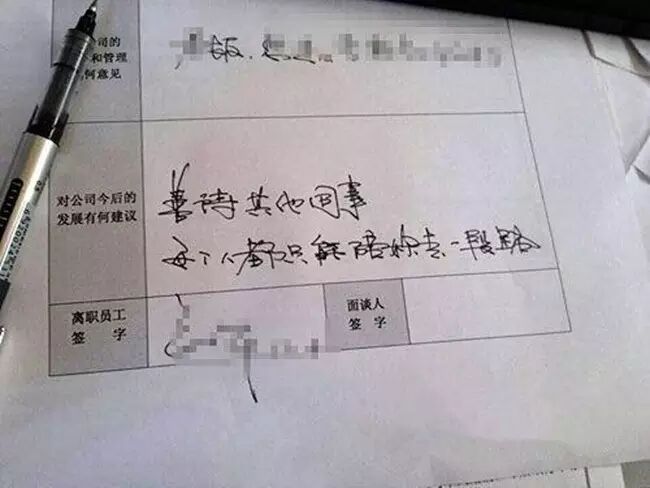 司的
和管理
何意见
板,
对公司今后的
发展有何建议
善待其他同事
每个人都只能陪你走一段路
离职员工
签 字
面谈人
签 字